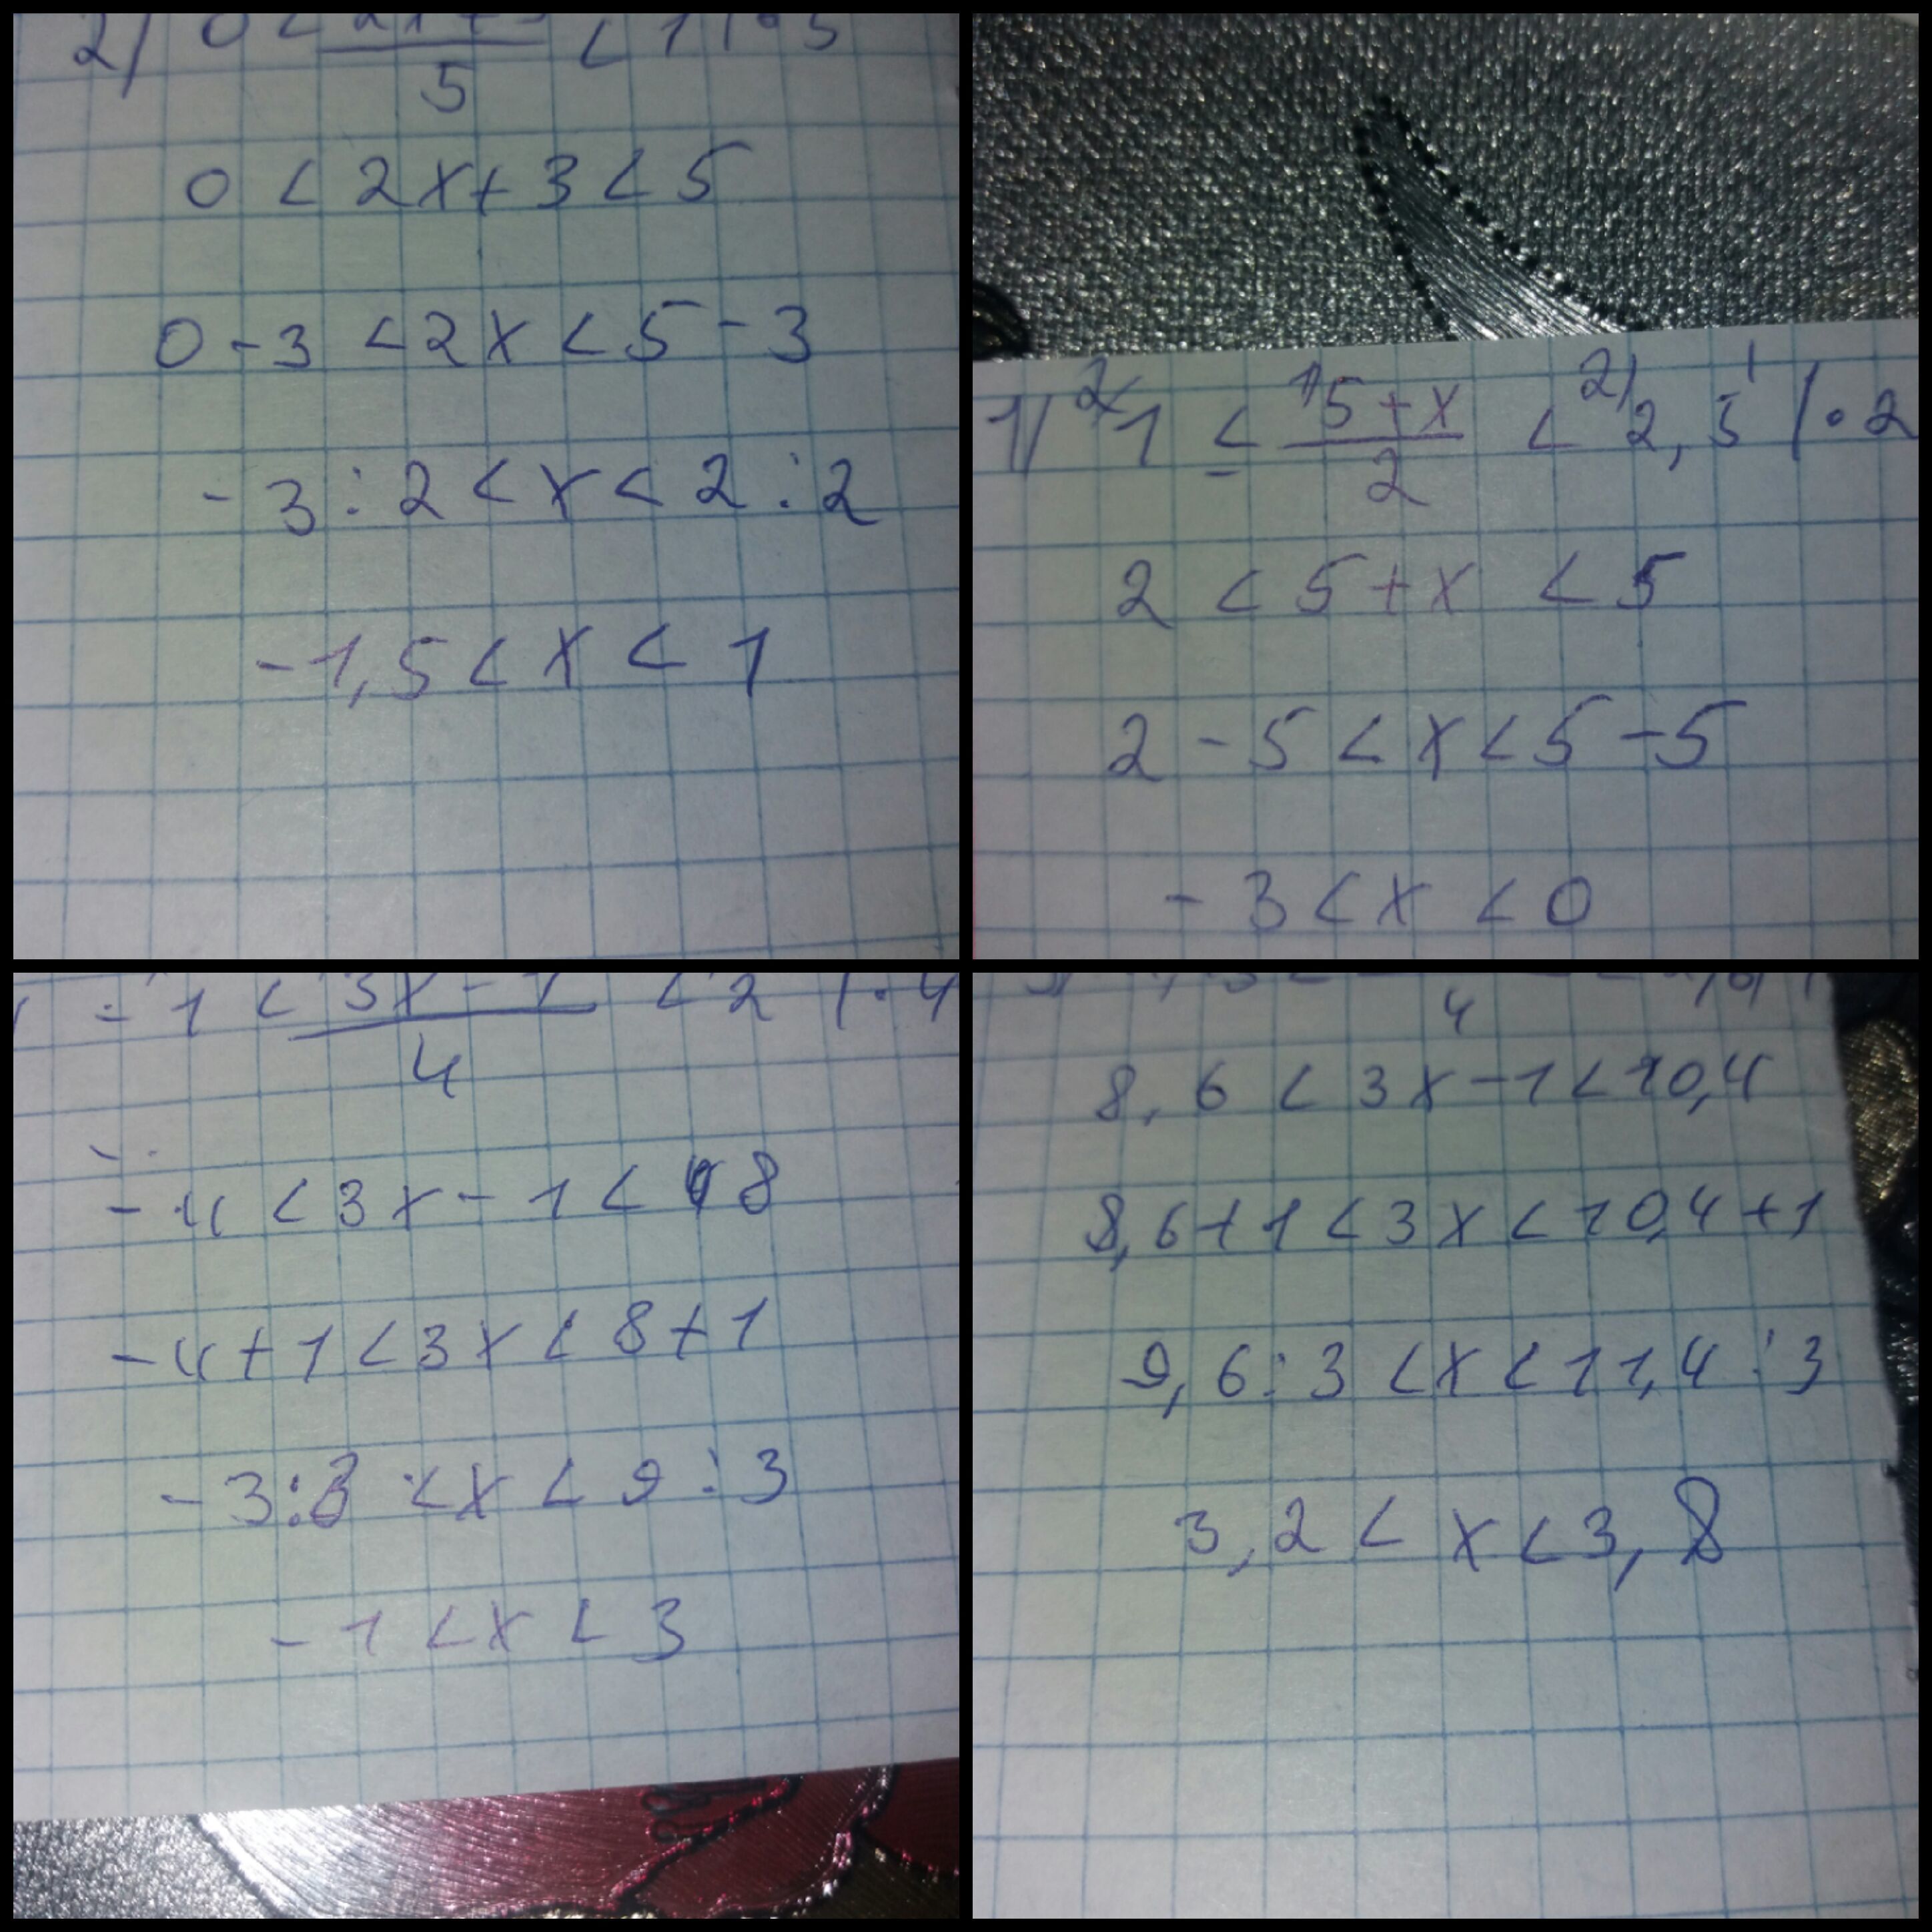 2) 0 < 2x+3/5 < 1 | · 5
0 < 2x + 3 < 5
0 - 3 < 2x < 5 - 3
- 3 : 2 < x < 2 : 2
- 1,5 < x < 1
1) 2/ 1 ≤ 1/ 5 + x / 2 < 2/ 2,5 | · 2
2 < 5 + x < 5
2 - 5 < x < 5 - 5
- 3 < x < 0
- 1 < 3x - 1 / 4 < 2 | · 4
- 4 < 3x - 1 < 8
- 4 + 1 < 3x < 8 + 1
- 3 : 3 < x < 9 : 3
- 1 < x < 3
4
8,6 < 3x - 1 < 10,4
8,6 + 1 < 3x < 10,4 + 1
9,6 : 3 < x < 11,4 : 3
3,2 < x < 3,8